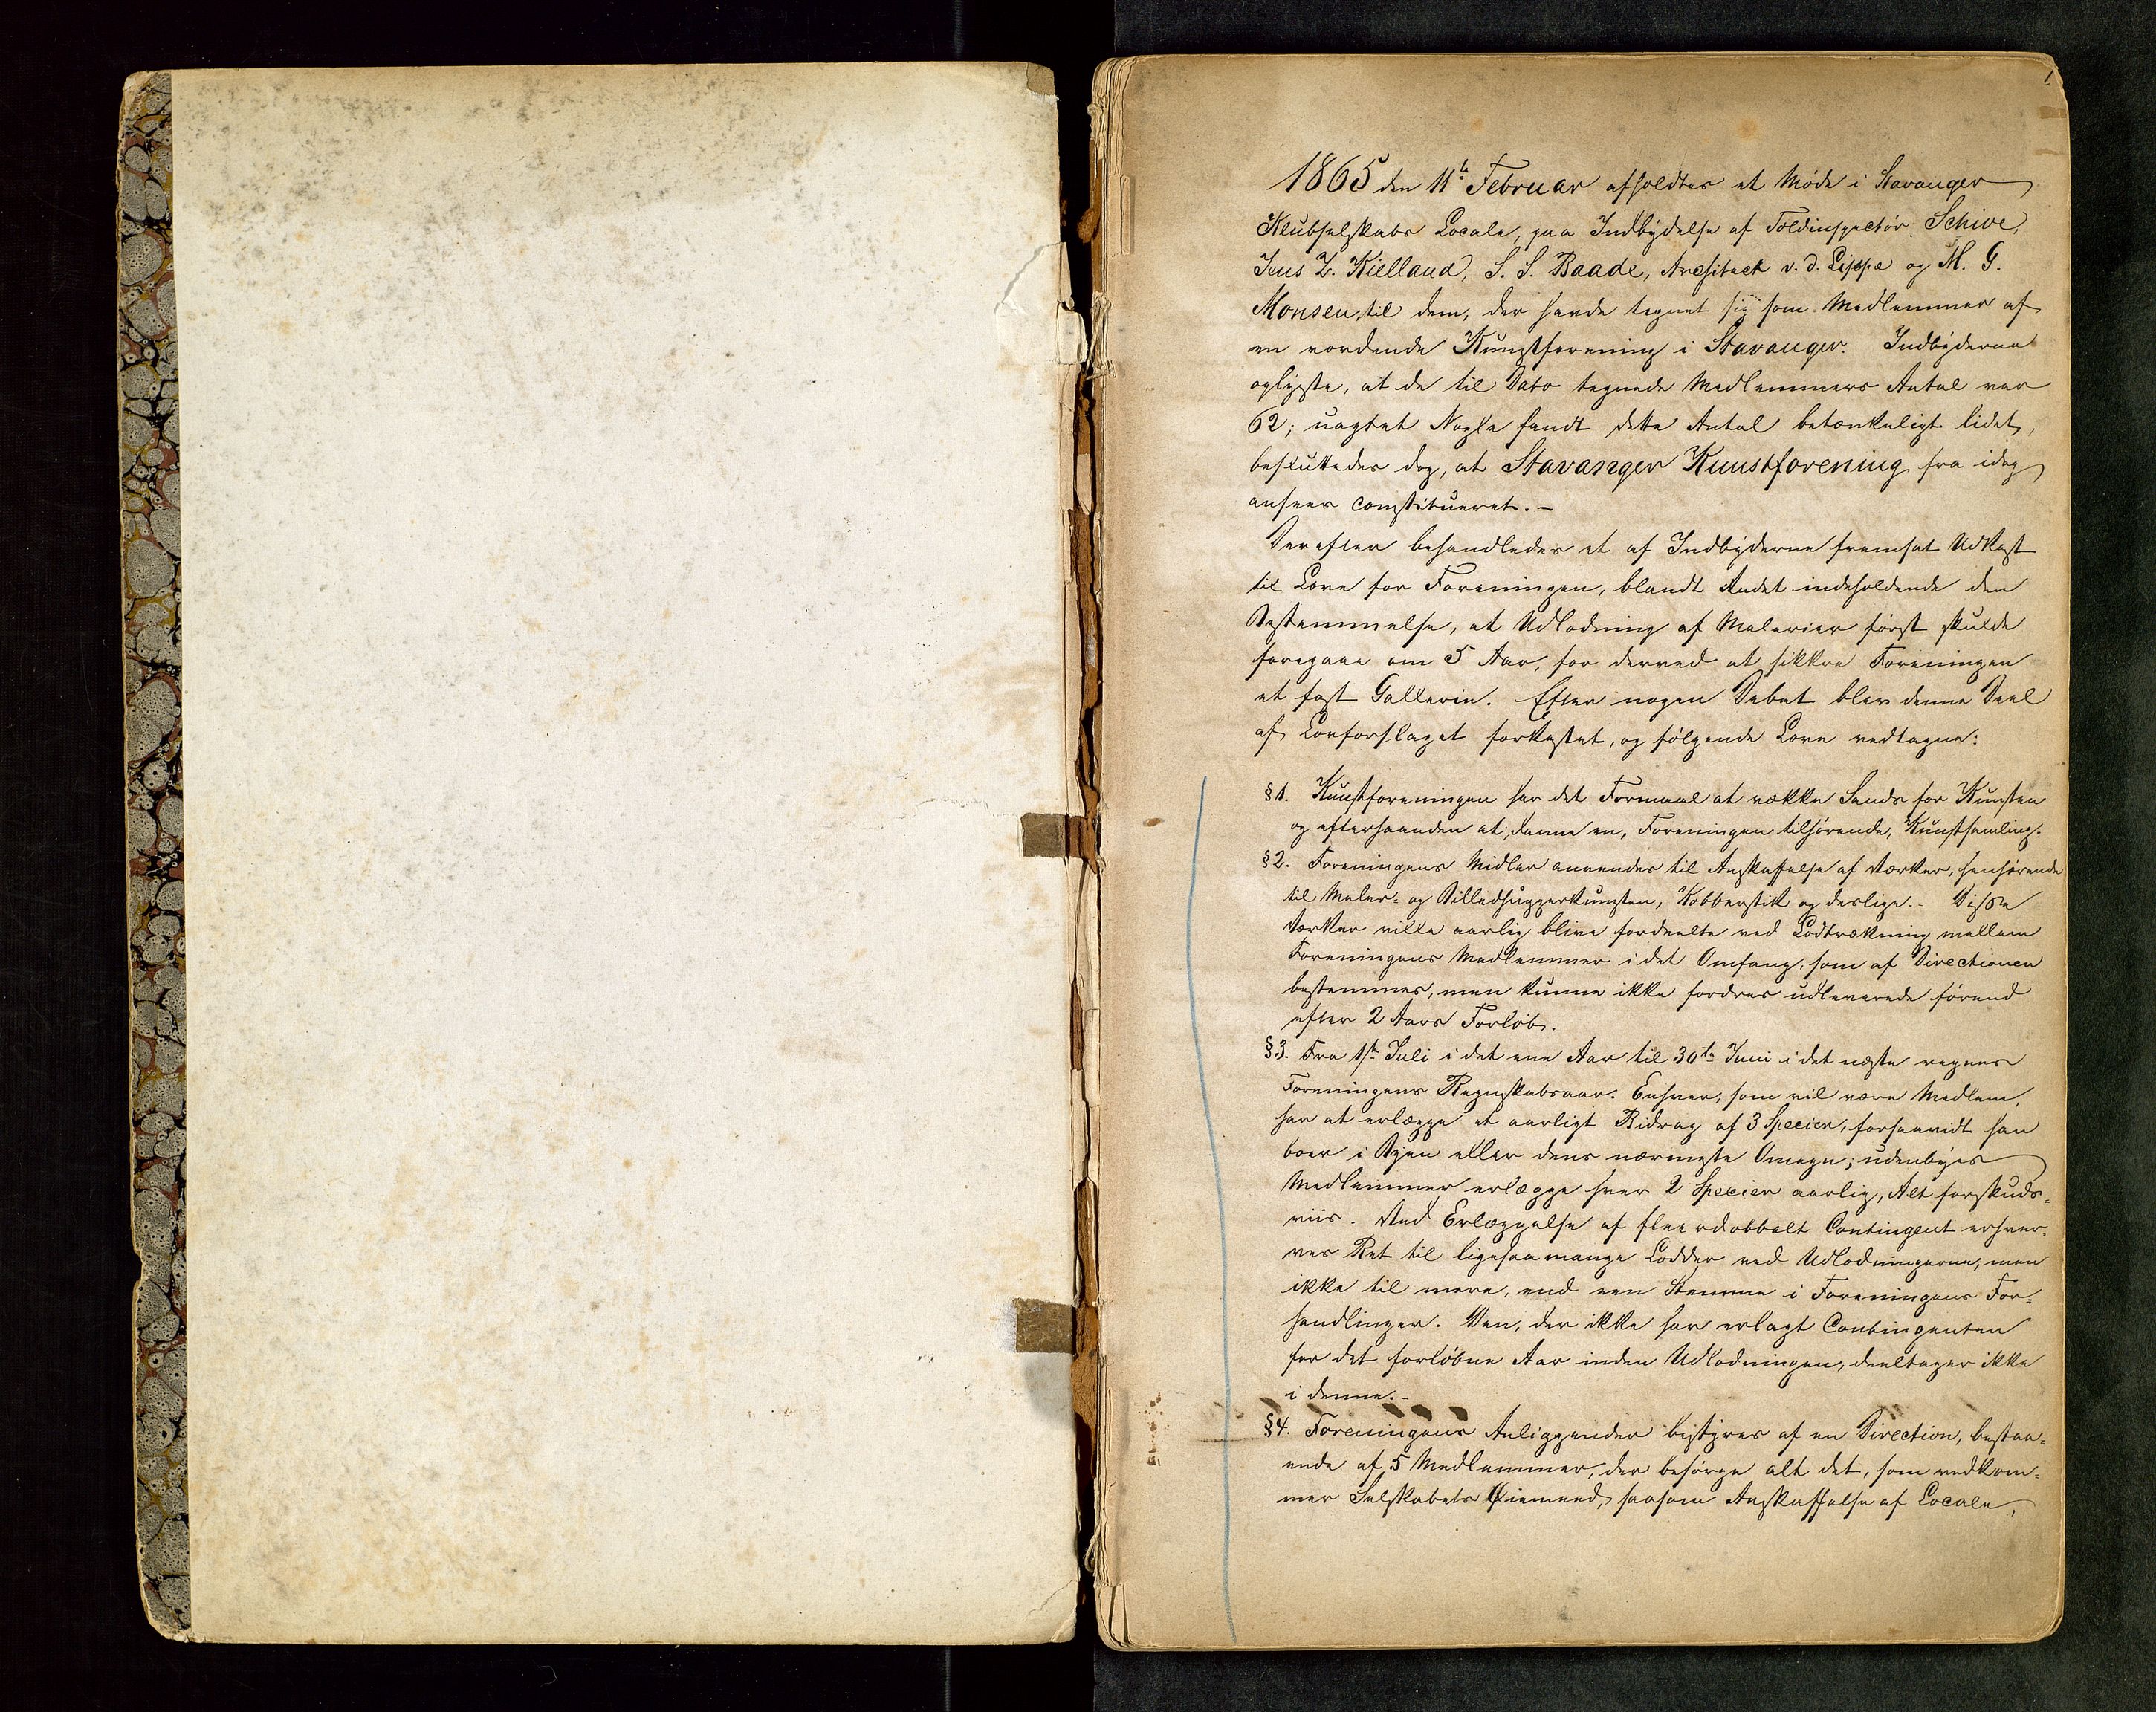 1
1865 den 11te Februar afholdtes et Møde i Stavanger
Klubselskabs Locale, paa Indbydelse af Toldinspectør Schive,
Jens Z. Kielland, S. S. Baade, Architect v. d. Lippe og M. G.
Monsen, til dem, der havde tegnet sig som Medlemmer af
en vordende Kunstforening i Stavanger. Indbyderne
oplyste, at de til Dato tegnede Medlemmers Antal var
62; uagtet Nogle fandt dette Antal betænkeligt lidet,
besluttedes dog, at Stavanger Kunstforening fra idag
ansees constitueret. -
Derefter behandledes et af Indbyderne fremsat Udkast
til Love for Foreningen, blandt Andet indeholdende den
Bestemmelse, at Udlodning af Malerier først skulde
foregaae om 5 Aar, for derved at sikkre Foreningen
et fast Gallerie. Efter nogen Debat blev denne Deel
af Lovforslaget forkastet, og følgende Love vedtagne:
§ 1. Kunstforeningen har det Formaal at vække Sands for Kunsten
og efterhaanden at danne en, Foreningen tilhørende, Kunstsamling.
§ 2. Foreningens Midler anvendes til Anskaffelse af Værker, henhørende
til Maler- og Billedhuggerkunsten, Kobberstik og deslige. - Disse
Værker ville aarlig blive fordeelte ved Lodtrækning mellem
Foreningens Medlemmer i det Omfang, som af Directionen
bestemmes, men kunne ikke fordres udleverede førend
efter 2 Aars Forløb.
§ 3. Fra 1ste Juli i det ene Aar til 30te Juni i det næste regnes
Foreningens Regnskabsaar. Enhver, som vil være Medlem,
har at erlægge et aarligt Bidrag af 3 Species, forsaavidt han
boer i Byen eller dens nærmeste Omegn; udenbyes
Medlemmer erlægge hver 2 Species aarlig, Alt forskuds-
viis. Ved Erlæggelse af fleerdobbelt Contingent erhver-
ves Ret til ligesaamange Lodder ved Udlodningerne, men
ikke til mere, end een Stemme i Foreningens For-
handlinger. Den, der ikke har erlagt Contingenten
for det forløbne Aar inden Udlodningen, deeltager ikke
i denne. -
§ 4. Foreningens Anliggender bestyres af en Direction, bestaa-
ende af 5 Medlemmer, der besørge alt det, som vedkom-
mer Selskabets Øiemeed, saasom Anskaffelse af Locale,